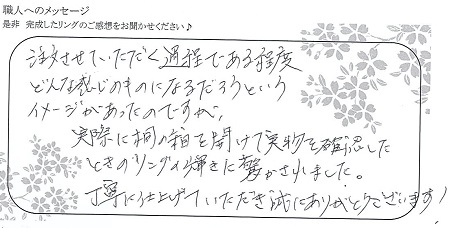 職人へのメッセージ
是非 完成したリングのご感想をお聞かせください♪
注文させていただく過程である程度
どんな感じのものになるだろうという
イメージがあったのですが、
実際に桐の箱を開けて実物を確認した
ときのリングの輝きに驚かされました。
丁寧に仕上げていただき誠にありがとうございます!